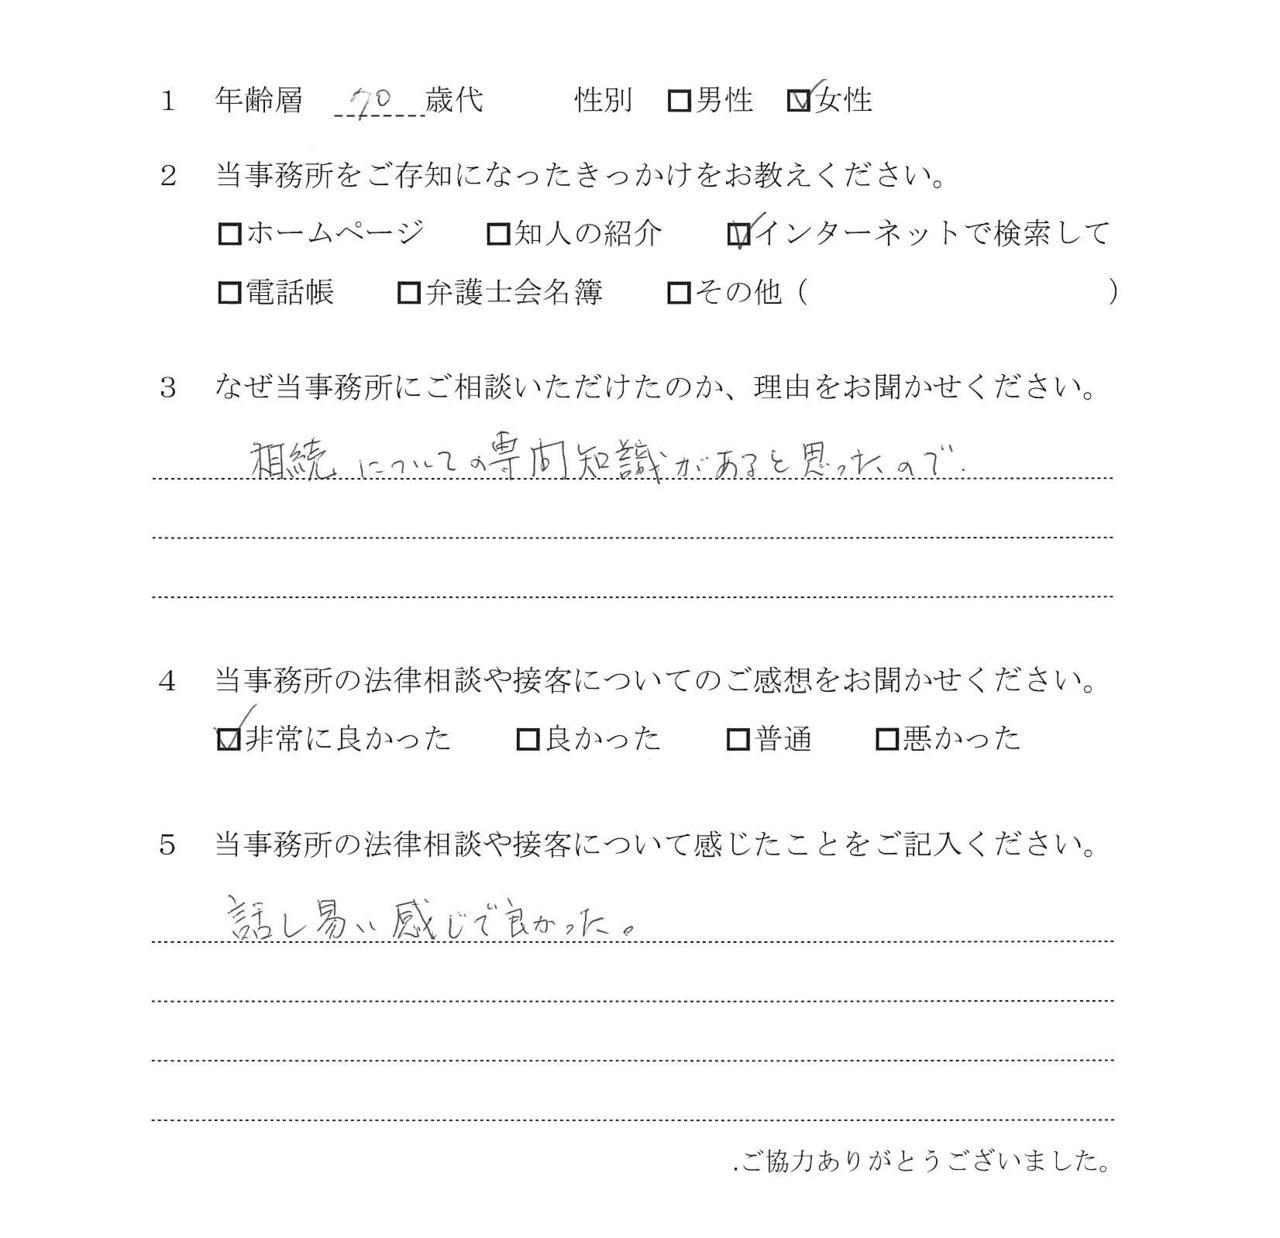 1 年齢層 70 歳代 性別 □男性 ☑女性
2 当事務所をご存知になったきっかけをお教えください。
□ホームページ □知人の紹介 ☑インターネットで検索して
□電話帳 □弁護士会名簿 □その他（ ）
3 なぜ当事務所にご相談いただけたのか、理由をお聞かせください。
相続についての専門知識があると思ったので.
4 当事務所の法律相談や接客についてのご感想をお聞かせください。
☑非常に良かった □良かった □普通 □悪かった
5 当事務所の法律相談や接客について感じたことをご記入ください。
話し易い感じで良かった。
.ご協力ありがとうございました。